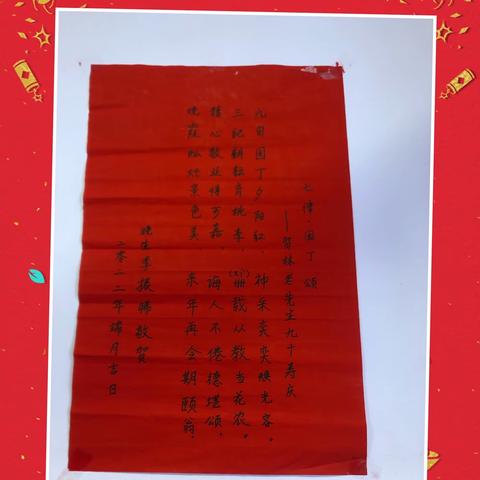 七律·园丁颂
——贺林老先生九十寿庆
九旬园丁夕阳红，神采奕奕焕光容。
三纪耕耘育桃李，卅载从教当花农。
精心教廷情可嘉，诲人不倦德堪颂，
晚霞灿烂景色美，来年再会期颐翁。
晚生李振腾敬贺
二零二二年端月吉日